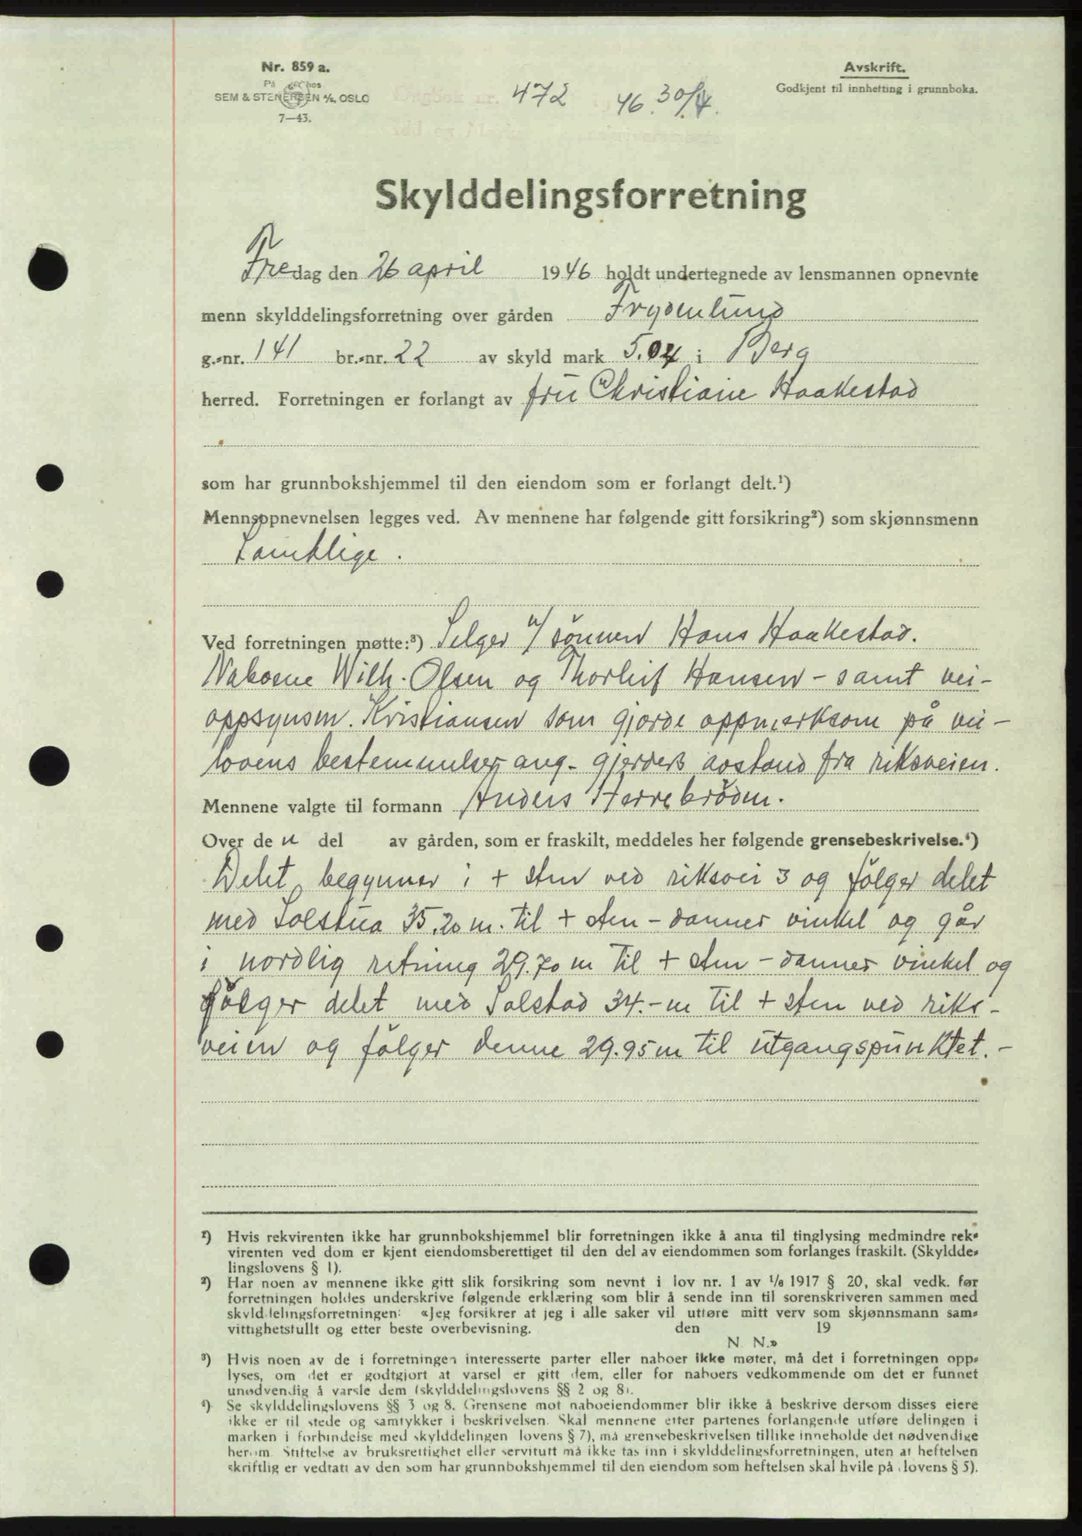 Nr. 859 a.
På hos
SEM & STENERSEN A/S, OSLO
7—43.
Avskrift.
Godkjent til innhefting i grunnboka.
Dagbok nr. 472 19 46. 30/4.
Skylddelingsforretning
Fredag den 26 april 1946 holdt undertegnede av lensmannen opnevnte
menn skylddelingsforretning over gården Frydenlund
g.-nr. 141 br.-nr. 22 av skyld mark 5.04 i Berg
herred. Forretningen er forlangt av fru Christiane Haakestad
som har grunnbokshjemmel til den eiendom som er forlangt delt.¹)
Mennsoppnevnelsen legges ved. Av mennene har følgende gitt forsikring²) som skjønnsmenn
Samtlige.
Ved forretningen møtte:³) Selger v/ sönnen Hans Haakestad.
Naboene Wilh. Olsen og Thorleif Hansen – samt vei-
oppsynsm. Kristiansen som gjorde oppmerksom på vei-
lovens bestemmelser ang. gjerders avstand fra riksveien.
Mennene valgte til formann Anders Herrebröden.
Over de n del av gården, som er fraskilt, meddeles her følgende grensebeskrivelse.⁴)
Delet begynner i + sten ved riksvei 3 og fölger delet
med Solstua 35.20 m. til + sten – danner vinkel og går
i nordlig retning 29.70 m til + sten – danner vinkel og
fölger delet med Solstad 34.– m til + sten ved riks-
veien og fölger denne 29.95 m til utgangspunktet.–
¹) Hvis rekvirenten ikke har grunnbokshjemmel blir forretningen ikke å anta til tinglysing medmindre rek-
virenten ved dom er kjent eiendomsberettiget til den del av eiendommen som forlanges fraskilt. (Skyldde-
lingslovens § 1).
²) Har noen av mennene ikke gitt slik forsikring som nevnt i lov nr. 1 av 1/6 1917 § 20, skal vedk. før
forretningen holdes underskrive følgende erklæring som blir å sende inn til sorenskriveren sammen med
skylddelingsforretningen: «Jeg forsikrer at jeg i alle saker vil utføre mitt verv som skjønnsmann sam-
vittighetsfullt og etter beste overbevisning. den 19
N. N.»
³) Hvis noen av de i forretningen interesserte parter eller naboer ikke møter, må det i forretningen opp-
lyses, om det er godtgjort at varsel er gitt dem, eller for naboers vedkommende om det er funnet
unødvendig å varsle dem (skylddelingslovens §§ 2 og 8).
⁴) Se skylddelingslovens §§ 3 og 8. Grensene mot naboeiendommer blir ikke å beskrive dersom disses eiere
ikke er til stede og samtykker i beskrivelsen. Skal mennene etter partenes forlangende utføre delingen i
marken i forbindelse med skylddelingen (lovens § 7), må grensebeskrivelsen tillike inneholde det nødvendige
herom. Stiftelse av bruksrettighet eller servitutt må ikke tas inn i skylddelingsforretningen, uten at heftelsen
skriftlig er vedtatt av den som har grunnbokshjemmel til den eiendom som heftelsen skal hvile på (lovens § 5).